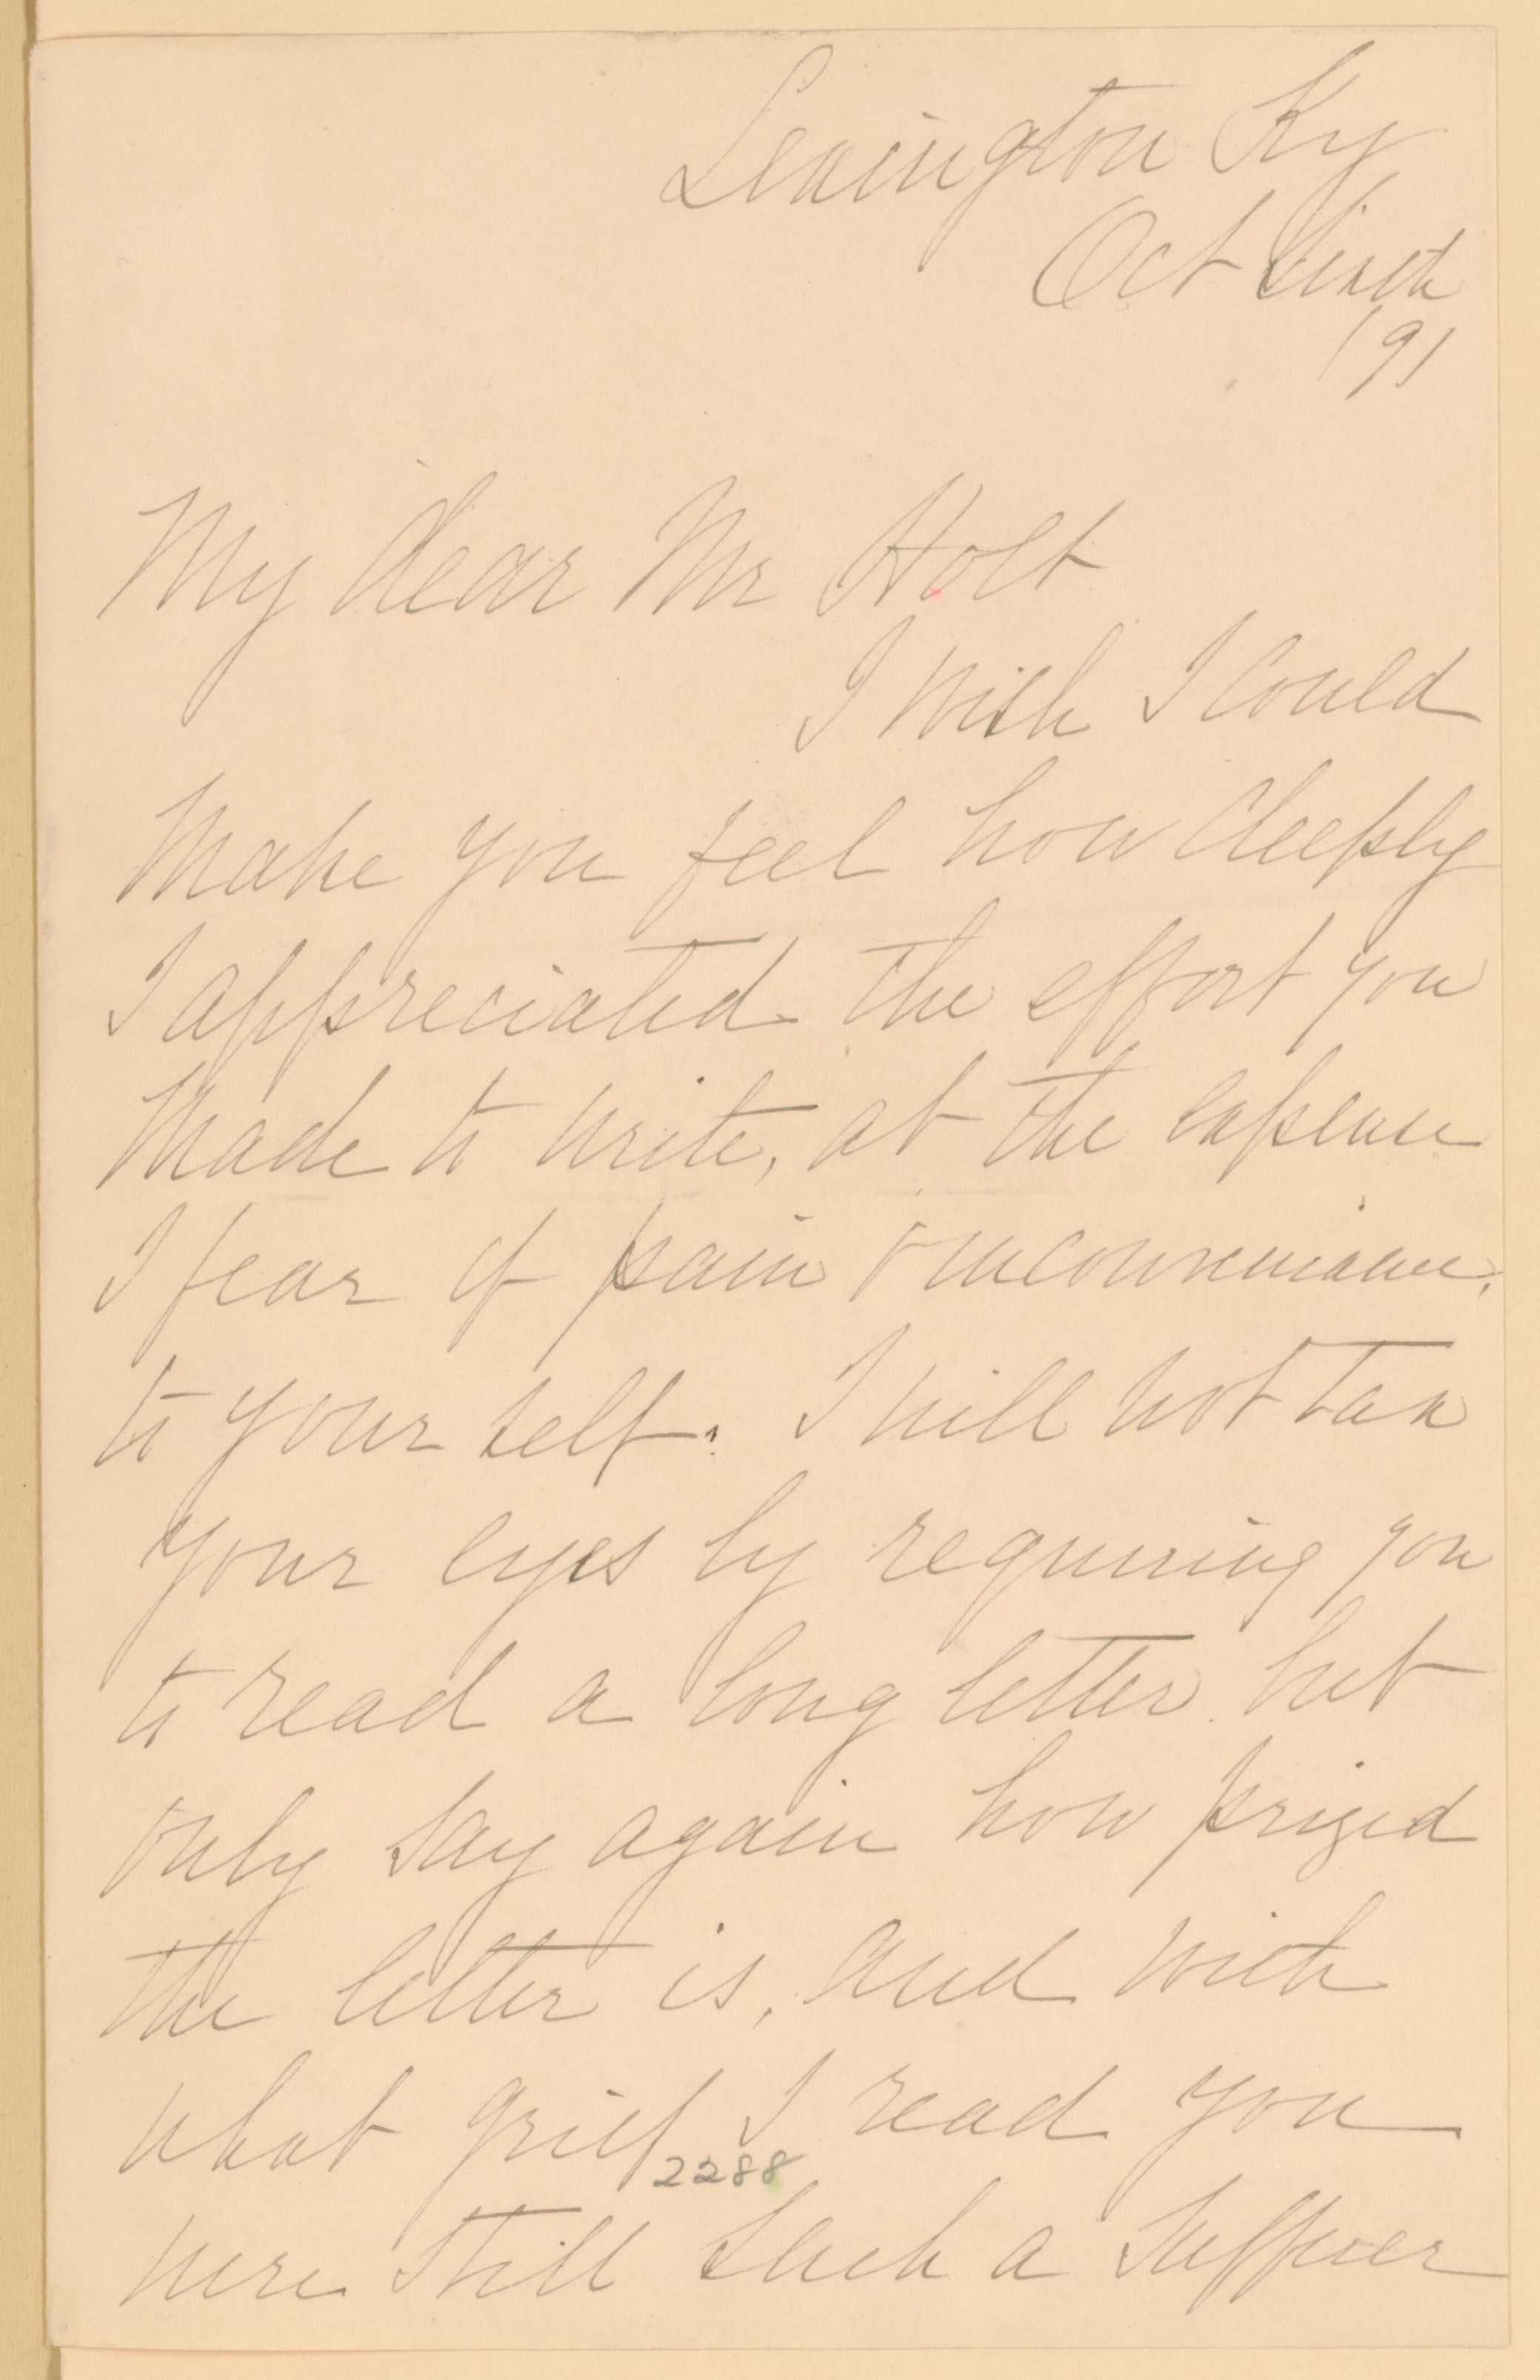 Lexington Ky
Oct Sixth
/91
My dear Mr Holt
I wish I could
make you feel how deeply
I appreciated the effort you
made to write, at the expense
I fear of pain & inconvenience,
to your self. I will not tax
your eyes by requiring you
to read a long letter but
only say again how prized
the letter is, and with
what grief I read you
2288
were still such a sufferer